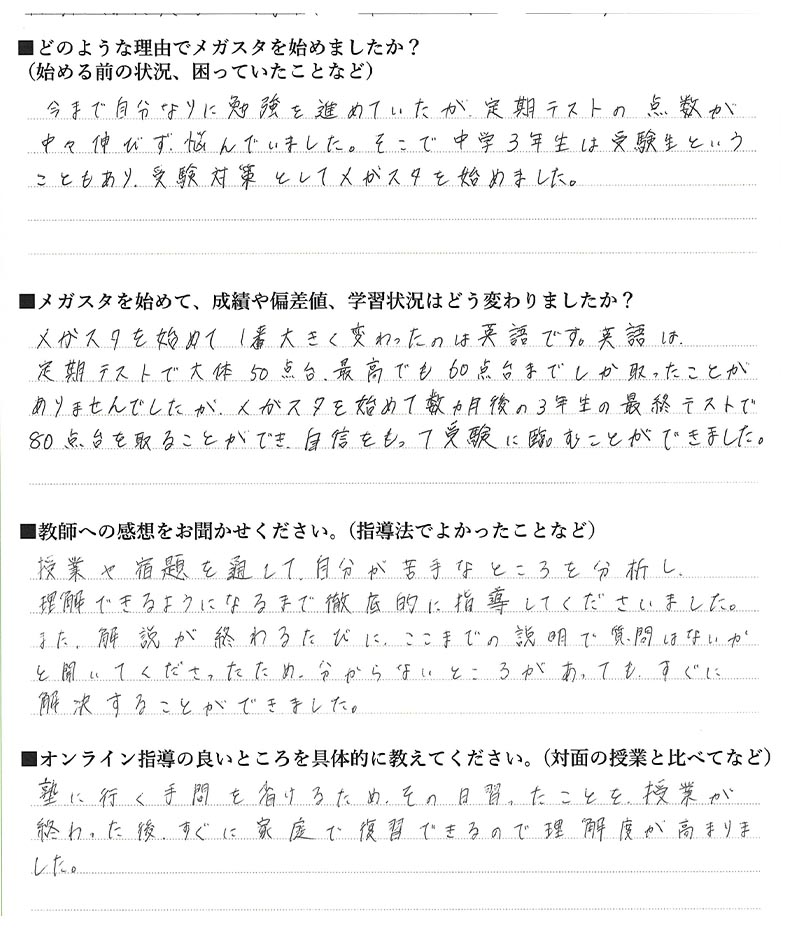 ■どのような理由でメガスタを始めましたか？
（始める前の状況、困っていたことなど）
今まで自分なりに勉強を進めていたが、定期テストの点数が
中々伸びず、悩んでいました。そこで中学3年生は受験生という
こともあり、受験対策としてメガスタを始めました。
■メガスタを始めて、成績や偏差値、学習状況はどう変わりましたか？
メガスタを始めて1番大きく変わったのは英語です。英語は、
定期テストで大体50点台、最高でも60点台までしか取ったことが
ありませんでしたが、メガスタを始めて数ヵ月後の3年生の最終テストで
80点台を取ることができ、自信をもって受験に臨むことができました。
■教師への感想をお聞かせください。（指導法でよかったことなど）
授業や宿題を通して、自分が苦手なところを分析し、
理解できるようになるまで徹底的に指導してくださいました。
また、解説が終わるたびに、ここまでの説明で質問はないか
と聞いてくださったため、分からないところがあっても、すぐに
解決することができました。
■オンライン指導の良いところを具体的に教えてください。（対面の授業と比べてなど）
塾に行く手間を省けるため、その日習ったことを、授業が
終わった後、すぐに家庭で復習できるので理解度が高まりま
した。